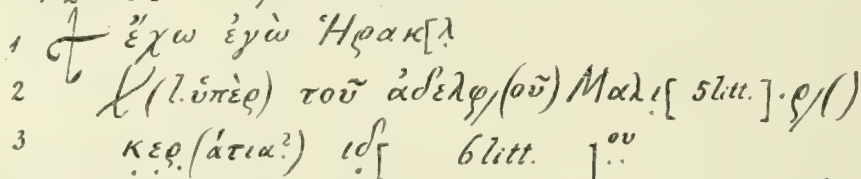 1 ⳨ ἔχω ἐγὼ Ἡρακ[λ̣
2 χ/(l. ὑπὲρ) τοῦ ἀδελφ/(οῦ) Μαλι̣[ 5 litt. ]·ρ/( )
3 κ̣ε̣ρ̣(άτια?) ιδ̣[ 6 litt. ]ο̣υ̣